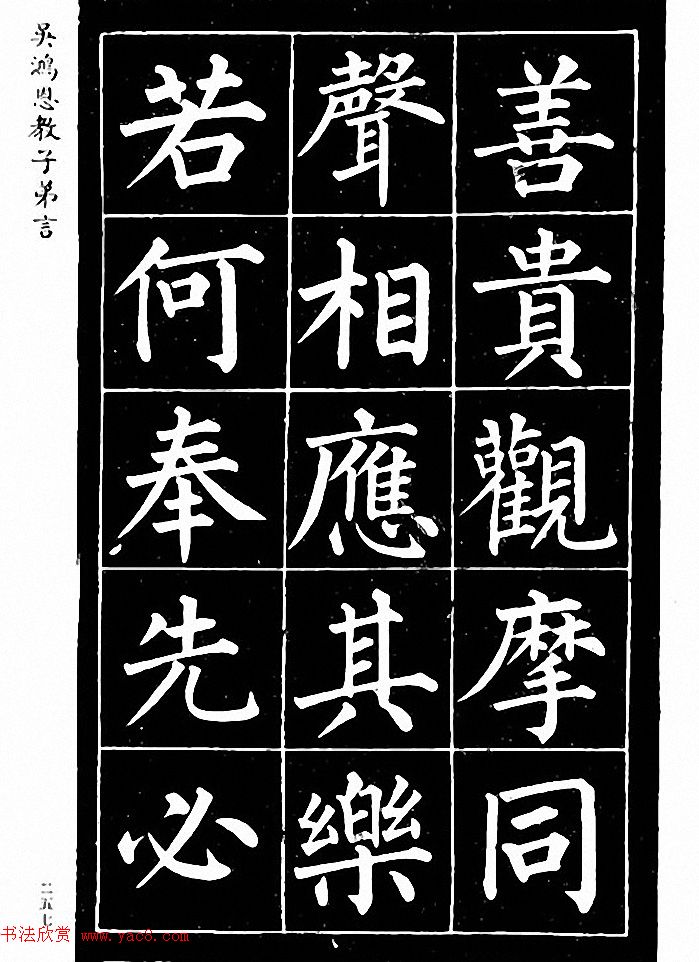 善貴觀摩同
聲相應其樂
若何奉先必
吳鴻恩教子弟言
二五七
书法欣赏 www.yac8.com